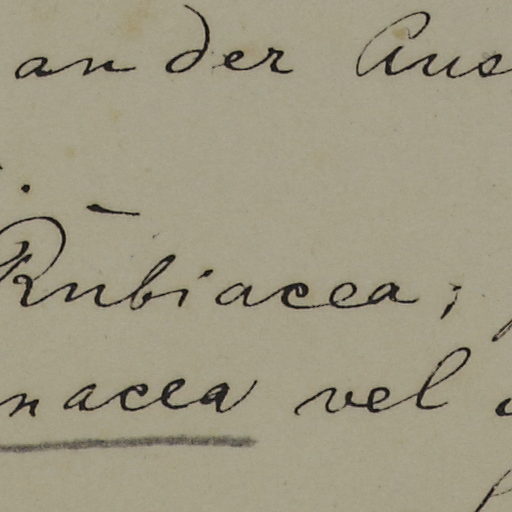 an der Aus
Rubiacea;
nacea vel